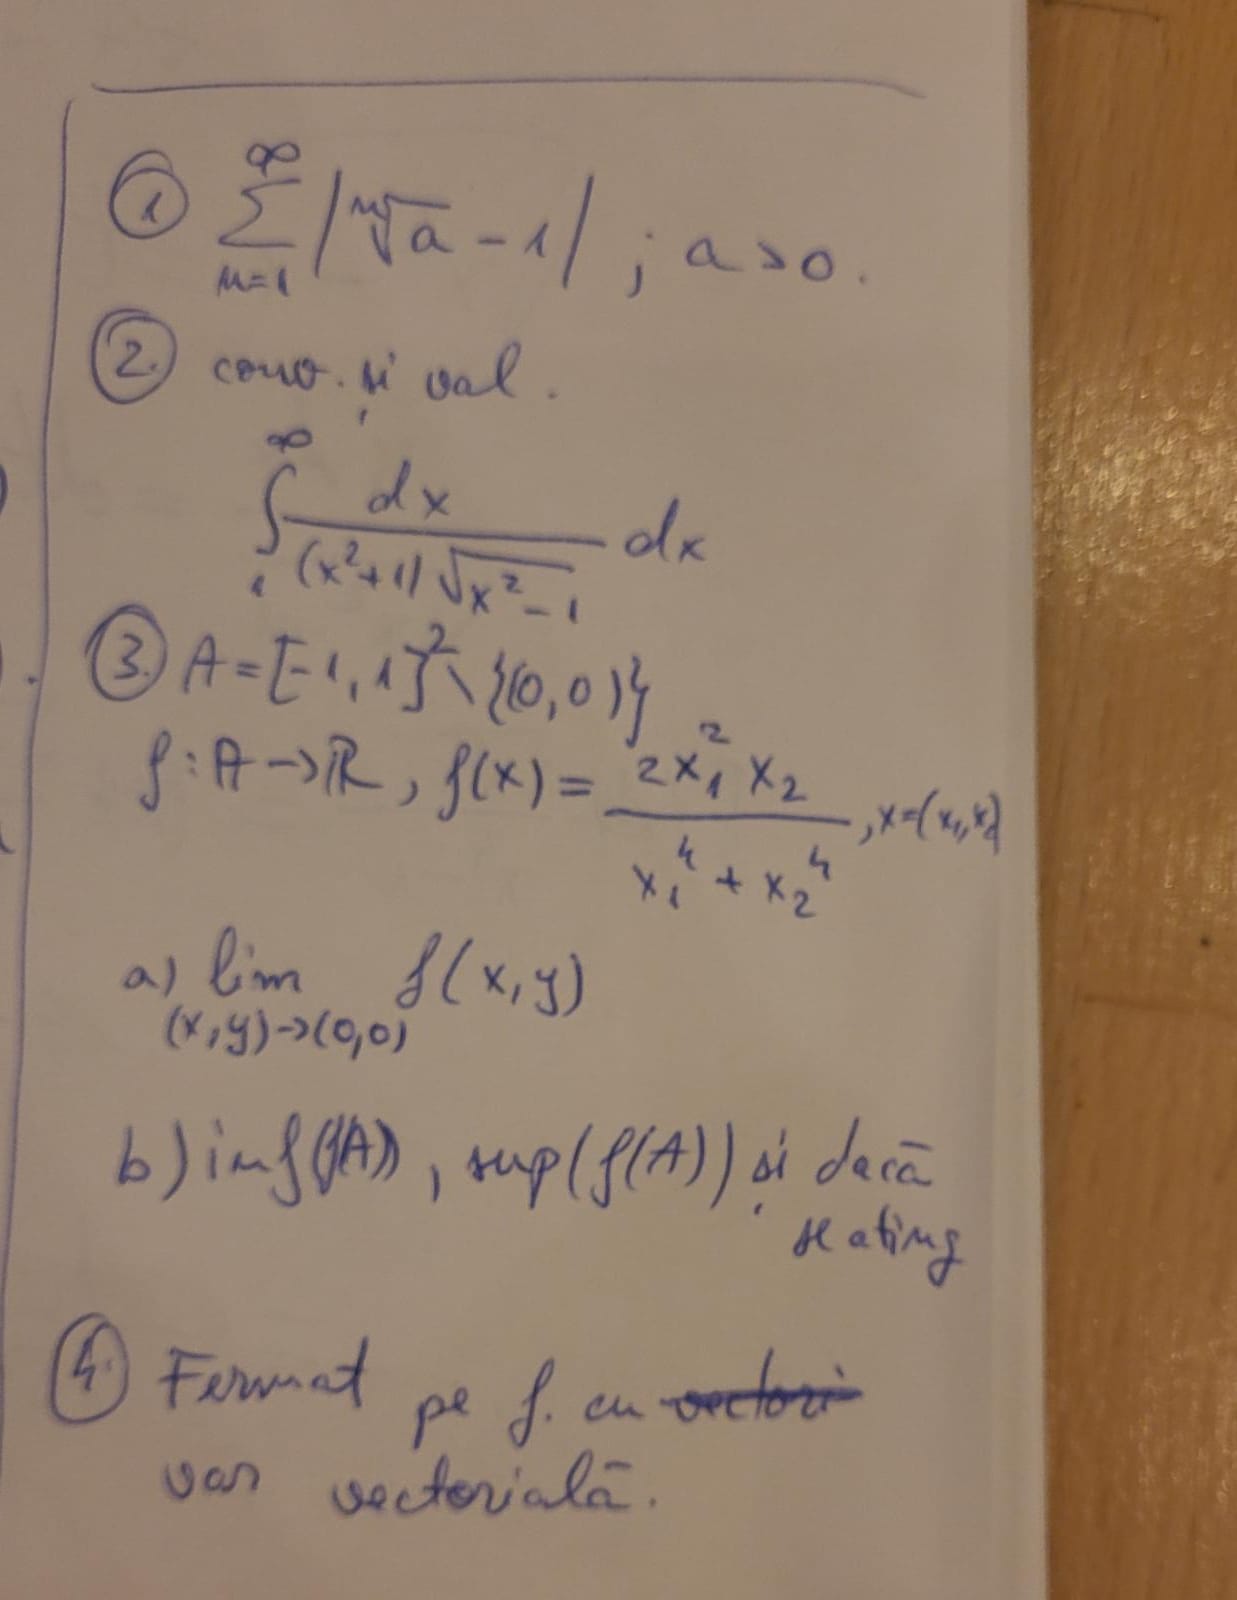 ① ∞∑n=1 |ⁿ√a - 1| ; a > 0.
② conv. și val.
∞∫1 dx / (x²+1)√x²-1 dx
③ A = [-1, 1]² \ {(0,0)}
f : A → ℝ, f(x) = 2x₁² x₂ / x₁⁴ + x₂⁴ , x=(x₁,x₂)
a) lim (x,y)→(0,0) f(x,y)
b) inf(f(A)), sup(f(A)) și dacă
se ating
④ Fermat pe f. cu vectori
var vectorială.